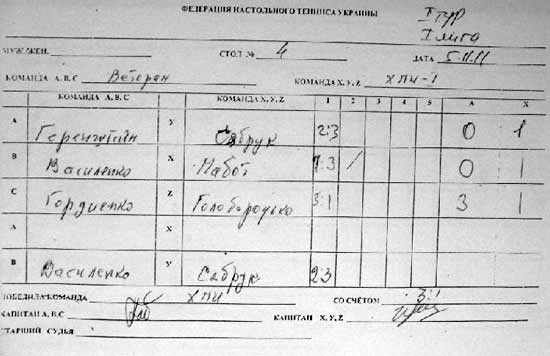 ФЕДЕРАЦИЯ НАСТОЛЬНОГО ТЕННИСА УКРАИНЫ
I тур
I лига
МУЖ./ЖЕН. СТОЛ № 4 ДАТА 5.11.11
КОМАНДА А, В, С Ветеран КОМАНДА X, Y, Z ХПИ-1
КОМАНДА А, В, С КОМАНДА X, Y, Z 1 2 3 4 5 А X
А Y Сабрук 2:3 0 1
В Василенко X Набот :3 0 1
С Гордиенко Z Голобородько 3:1 3 1
А X
В Василенко Y Сабрук 2:3
ПОБЕДИЛА КОМАНДА ХПИ СО СЧЁТОМ 3:1
КАПИТАН А, В, С КАПИТАН X, Y, Z
СТАРШИЙ СУДЬЯ